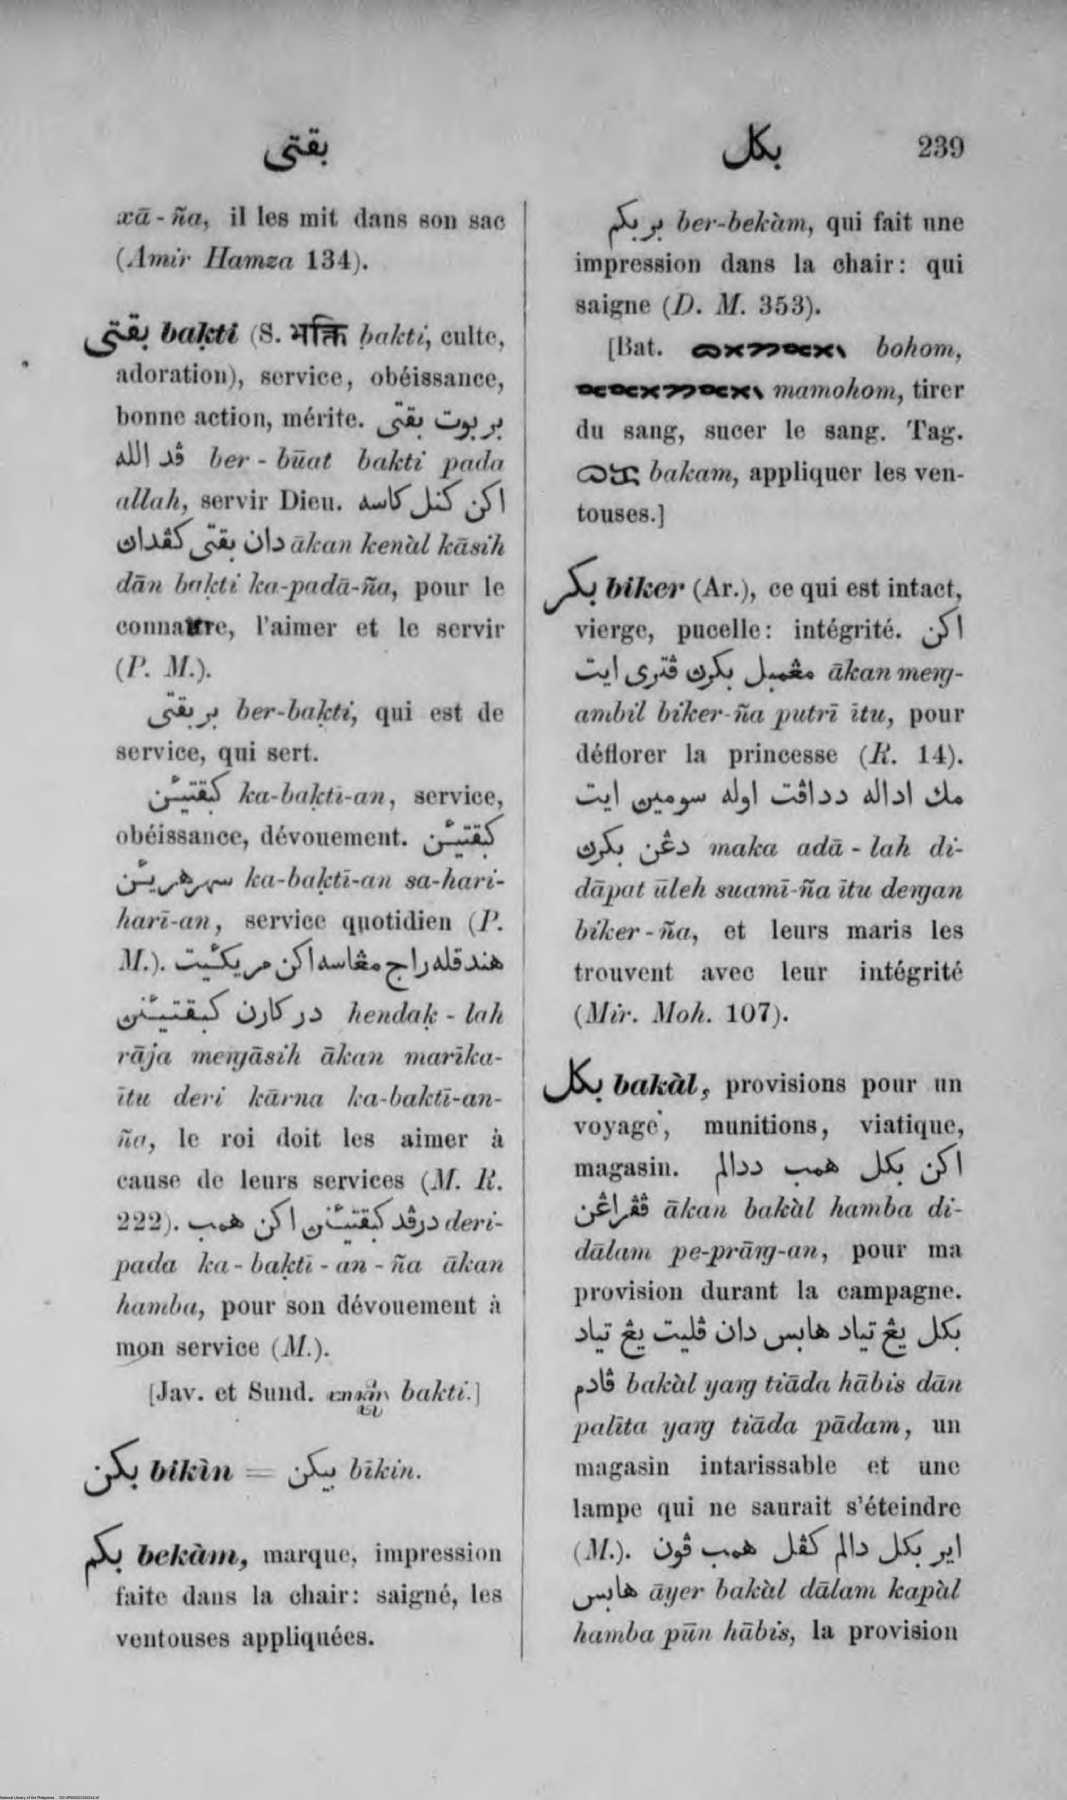 بقتي
بكل 239
xā-ña, il les mit dans son sac
(Amir Hamza 134).
بقتي baḳti (S. भक्ति ḅakti, culte,
adoration), service, obéissance,
bonne action, mérite. بربوت بقتي
ڤد الله ber-būat bakti pada
allah, servir Dieu. اكن كنل كاسه
دان بقتي كڤدان ākan kenàl kāsih
dān baḳti ka-padā-ña, pour le
connaître, l'aimer et le servir
(P. M.).
بربقتي ber-baḳti, qui est de
service, qui sert.
كبقتيئن ka-baḳtī-an, service,
obéissance, dévouement. كبقتيئن
سهرهريئن ka-baḳtī-an sa-hari-
harī-an, service quotidien (P.
M.). هندقله راج مڠاسه اكن مريكئيت
در كارن كبقتيئنڽ hendaḳ-lah
rāja meṅgāsih ākan marīka-
ītu deri kārna ka-baktī-an-
ña, le roi doit les aimer à
cause de leurs services (M. R.
222). درڤد كبقتيئنڽ اكن همب deri-
pada ka-baḳtī-an-ña ākan
hamba, pour son dévouement à
mon service (M.).
[Jav. et Sund. bakti.]
بكن bikìn = بيكن bīkin.
بكم bekàm, marque, impression
faite dans la chair: saigné, les
ventouses appliquées.
بربكم ber-bekàm, qui fait une
impression dans la chair: qui
saigne (D. M. 353).
[Bat. bohom,
mamohom, tirer
du sang, sucer le sang. Tag.
bakam, appliquer les ven-
touses.]
بكر biker (Ar.), ce qui est intact,
vierge, pucelle: intégrité. اكن
مڠمبل بكرڽ ڤتري ايت ākan meṅg-
ambil biker-ña putrī ītu, pour
déflorer la princesse (R. 14).
مك اداله دداڤت اوله سومين ايت
دڠن بكرڽ maka adā-lah di-
dāpat ūleh suamī-ña ītu deṅgan
biker-ña, et leurs maris les
trouvent avec leur intégrité
(Mir. Moh. 107).
بكل bakàl, provisions pour un
voyage, munitions, viatique,
magasin. اكن بكل همب ددالم
ڤڤراڠن ākan bakàl hamba di-
dālam pe-prāṅg-an, pour ma
provision durant la campagne.
بكل يڠ تياد هابس دان ڤليت يڠ تياد
ڤادم bakàl yaṅg tiāda hābis dān
palīta yaṅg tiāda pādam, un
magasin intarissable et une
lampe qui ne saurait s'éteindre
(M.). اير بكل دالم كڤل همب ڤون
هابس āyer bakàl dālam kapàl
hamba pūn hābis, la provision